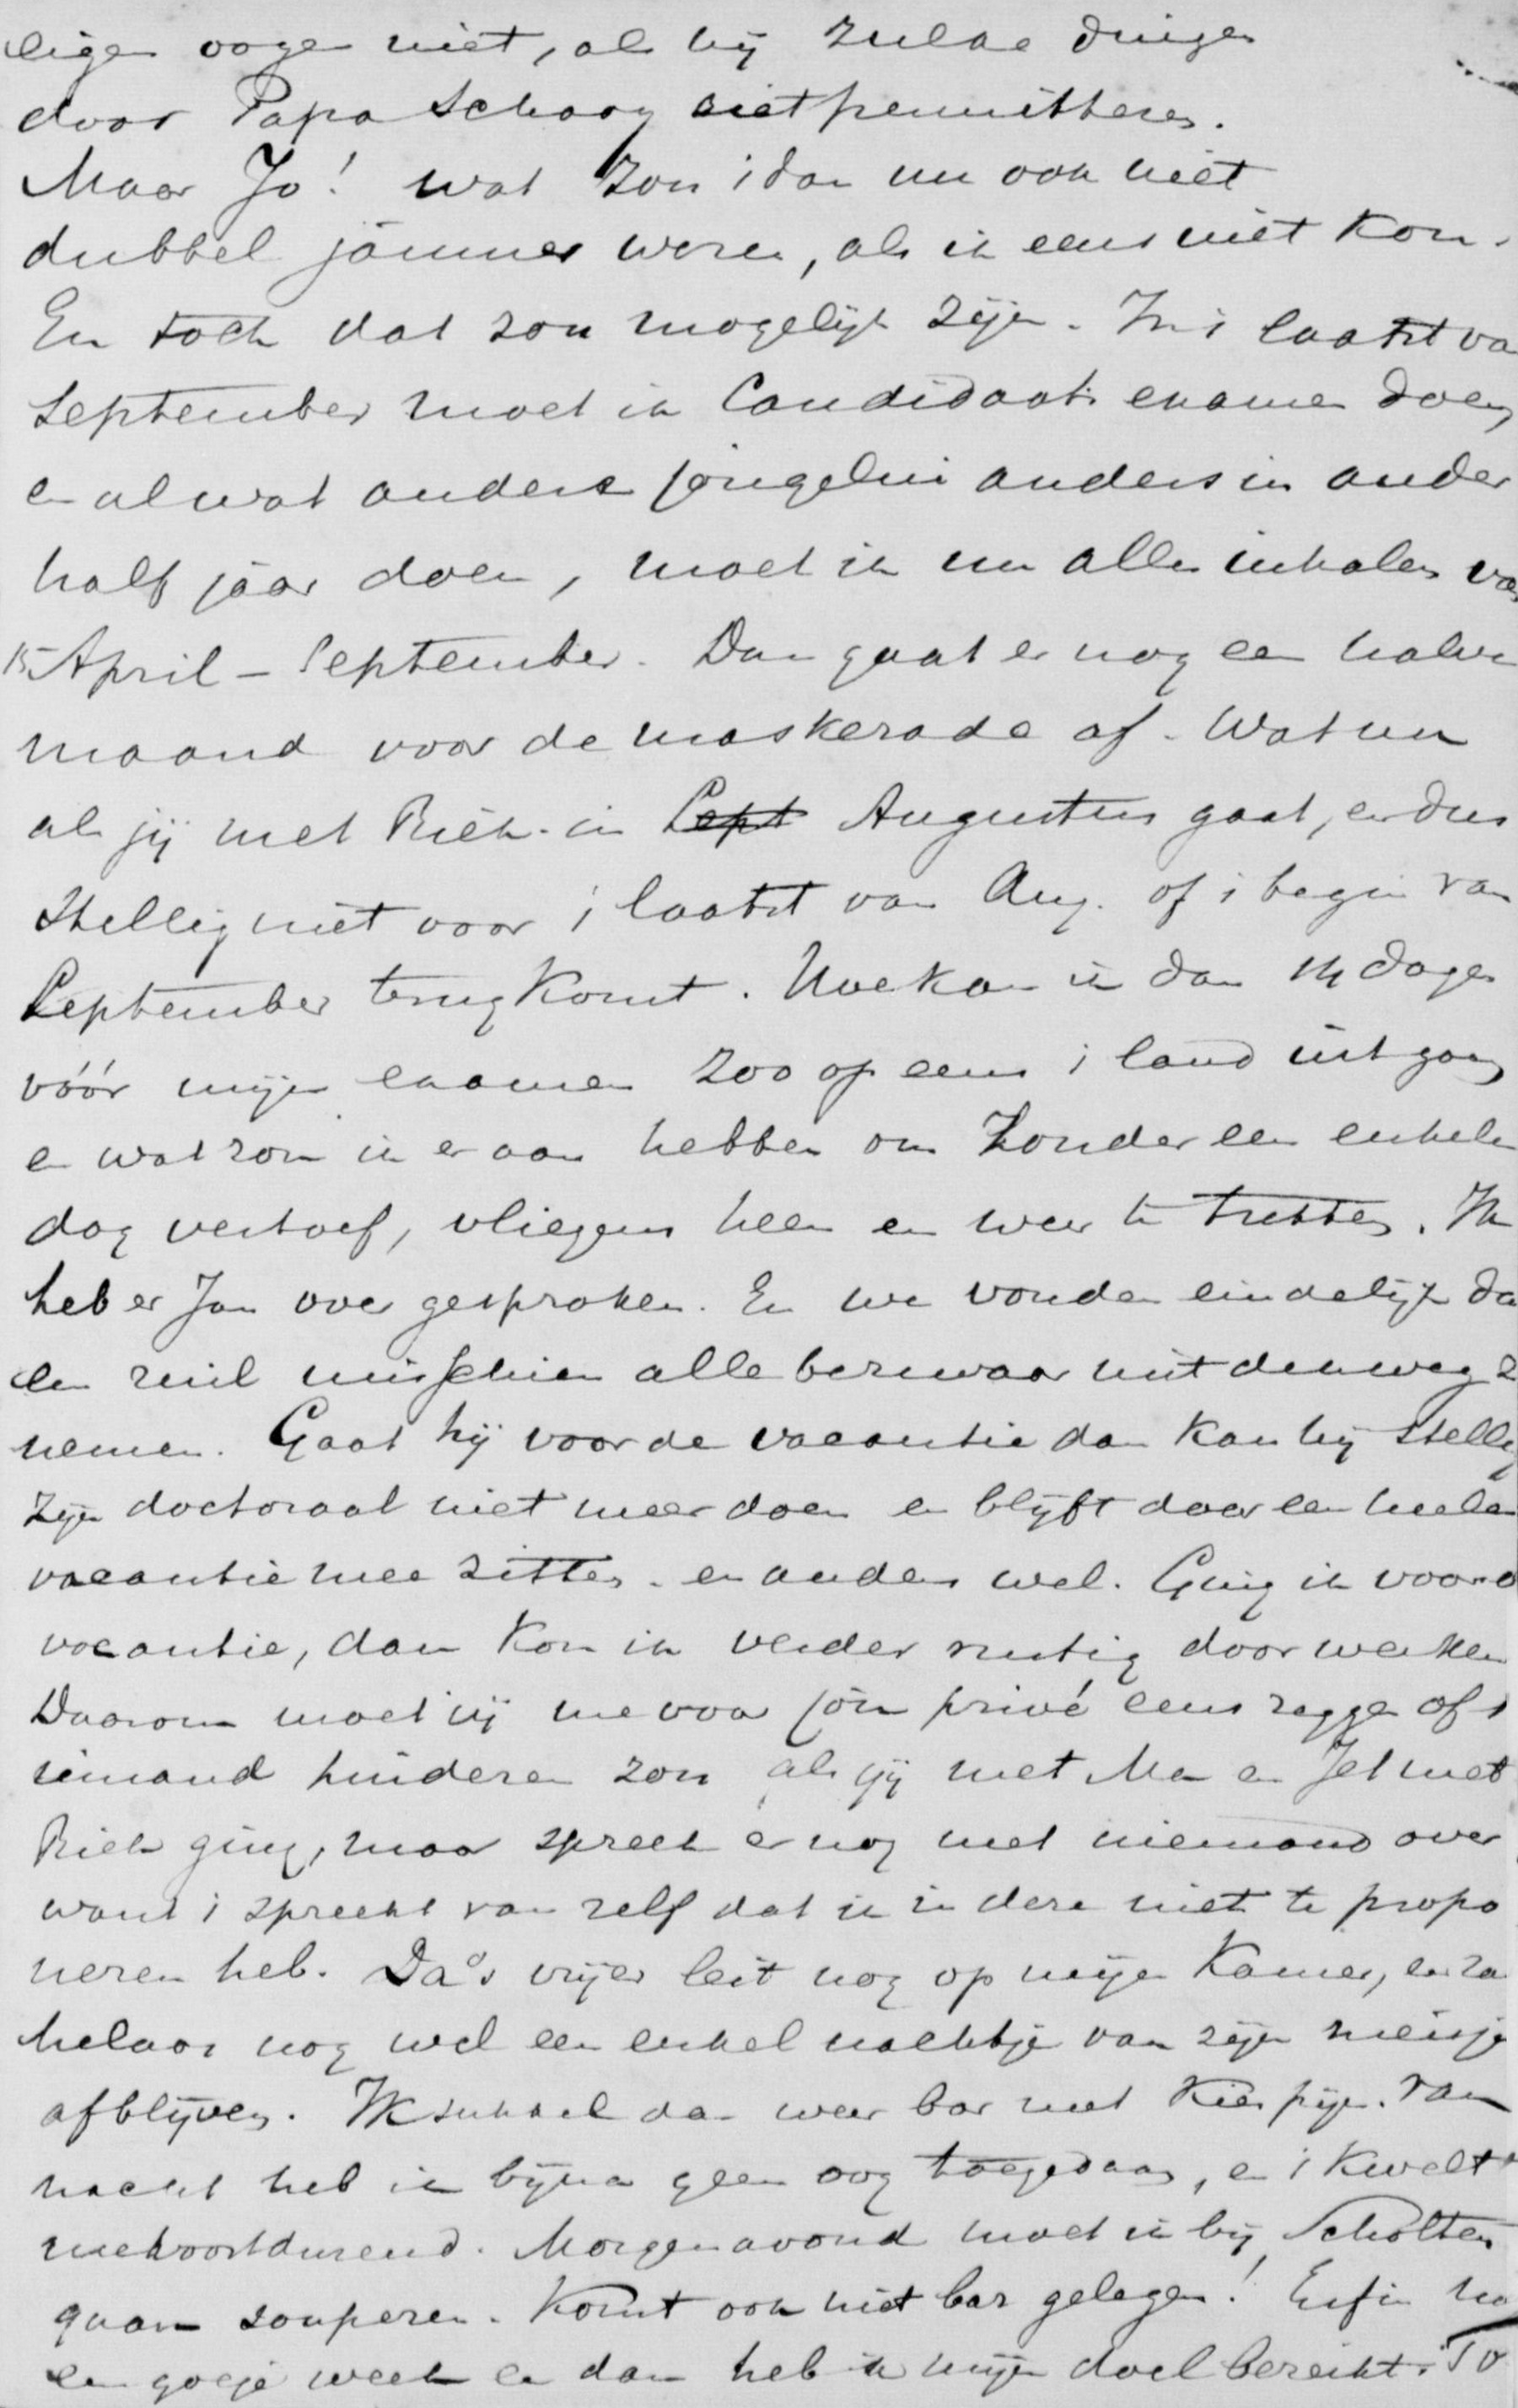 eigen oogen niet, als hij zulke dingen
door Papa Schaay niet permitteeren.
Maar Jo! wat zou i dan nu ook niet
dubbel jammer weren, als ik eens niet kon.
En toch dat zou mogelijk zijn. In i laatst va
September moet ik Candidaats examen doen,
en al wat andere jongelui anders in ander
half jaar doen, moet ik nu alles inhalen van
15 April - September. Dan gaat er nog een halve
maand voor de maskerade af. Wat nu
als jij met Riek in Sept Augustus gaat, en dus
stellig niet voor i laatst van Aug. of i begin van
September terug komt. Hoe kan ik dan 14 dagen
vóór mijn examen zoo op eens i land uit gaan
en wat zou ik er aan hebben om zonder een enkele
dag vertoef, vliegens heen en weer te trekken. Ik
heb er Jan over gesproken. En we vonden eindelijk da
een ruil misschien alle bezwaar uit den weg z
nemen. Gaat hij voor de vacantie dan kan hij stellig
zijn doctoraal niet meer doen en blijft daar een heele
vacantie mee zitten. en anders wel. Ging ik voor d
vacantie, dan kon ik verder rustig door werken
Daarom moet jij me voor jou privé eens zeggen of i
iemand hinderen zou als jij met Ma en Jet met
Riek ging, maar spreek er nog met niemand over
want i spreekt van zelf dat ik in deze niet te propo
neren heb. Da's vrijer leit nog op mijn kamer, en za
helaas nog wel een enkel nachtje van zijn meisje
afblijven. Ik sukkel dan weer bar met kiespijn. Van
nacht heb ik bijna geen oog toegedaan, en i kwelt
me voortdurend. Morgenavond moet ik bij Scholten
gaan souperen. Komt ook niet bar gelegen! Enfin no
een goeje week en dan heb ik mijn doel bereikt. To